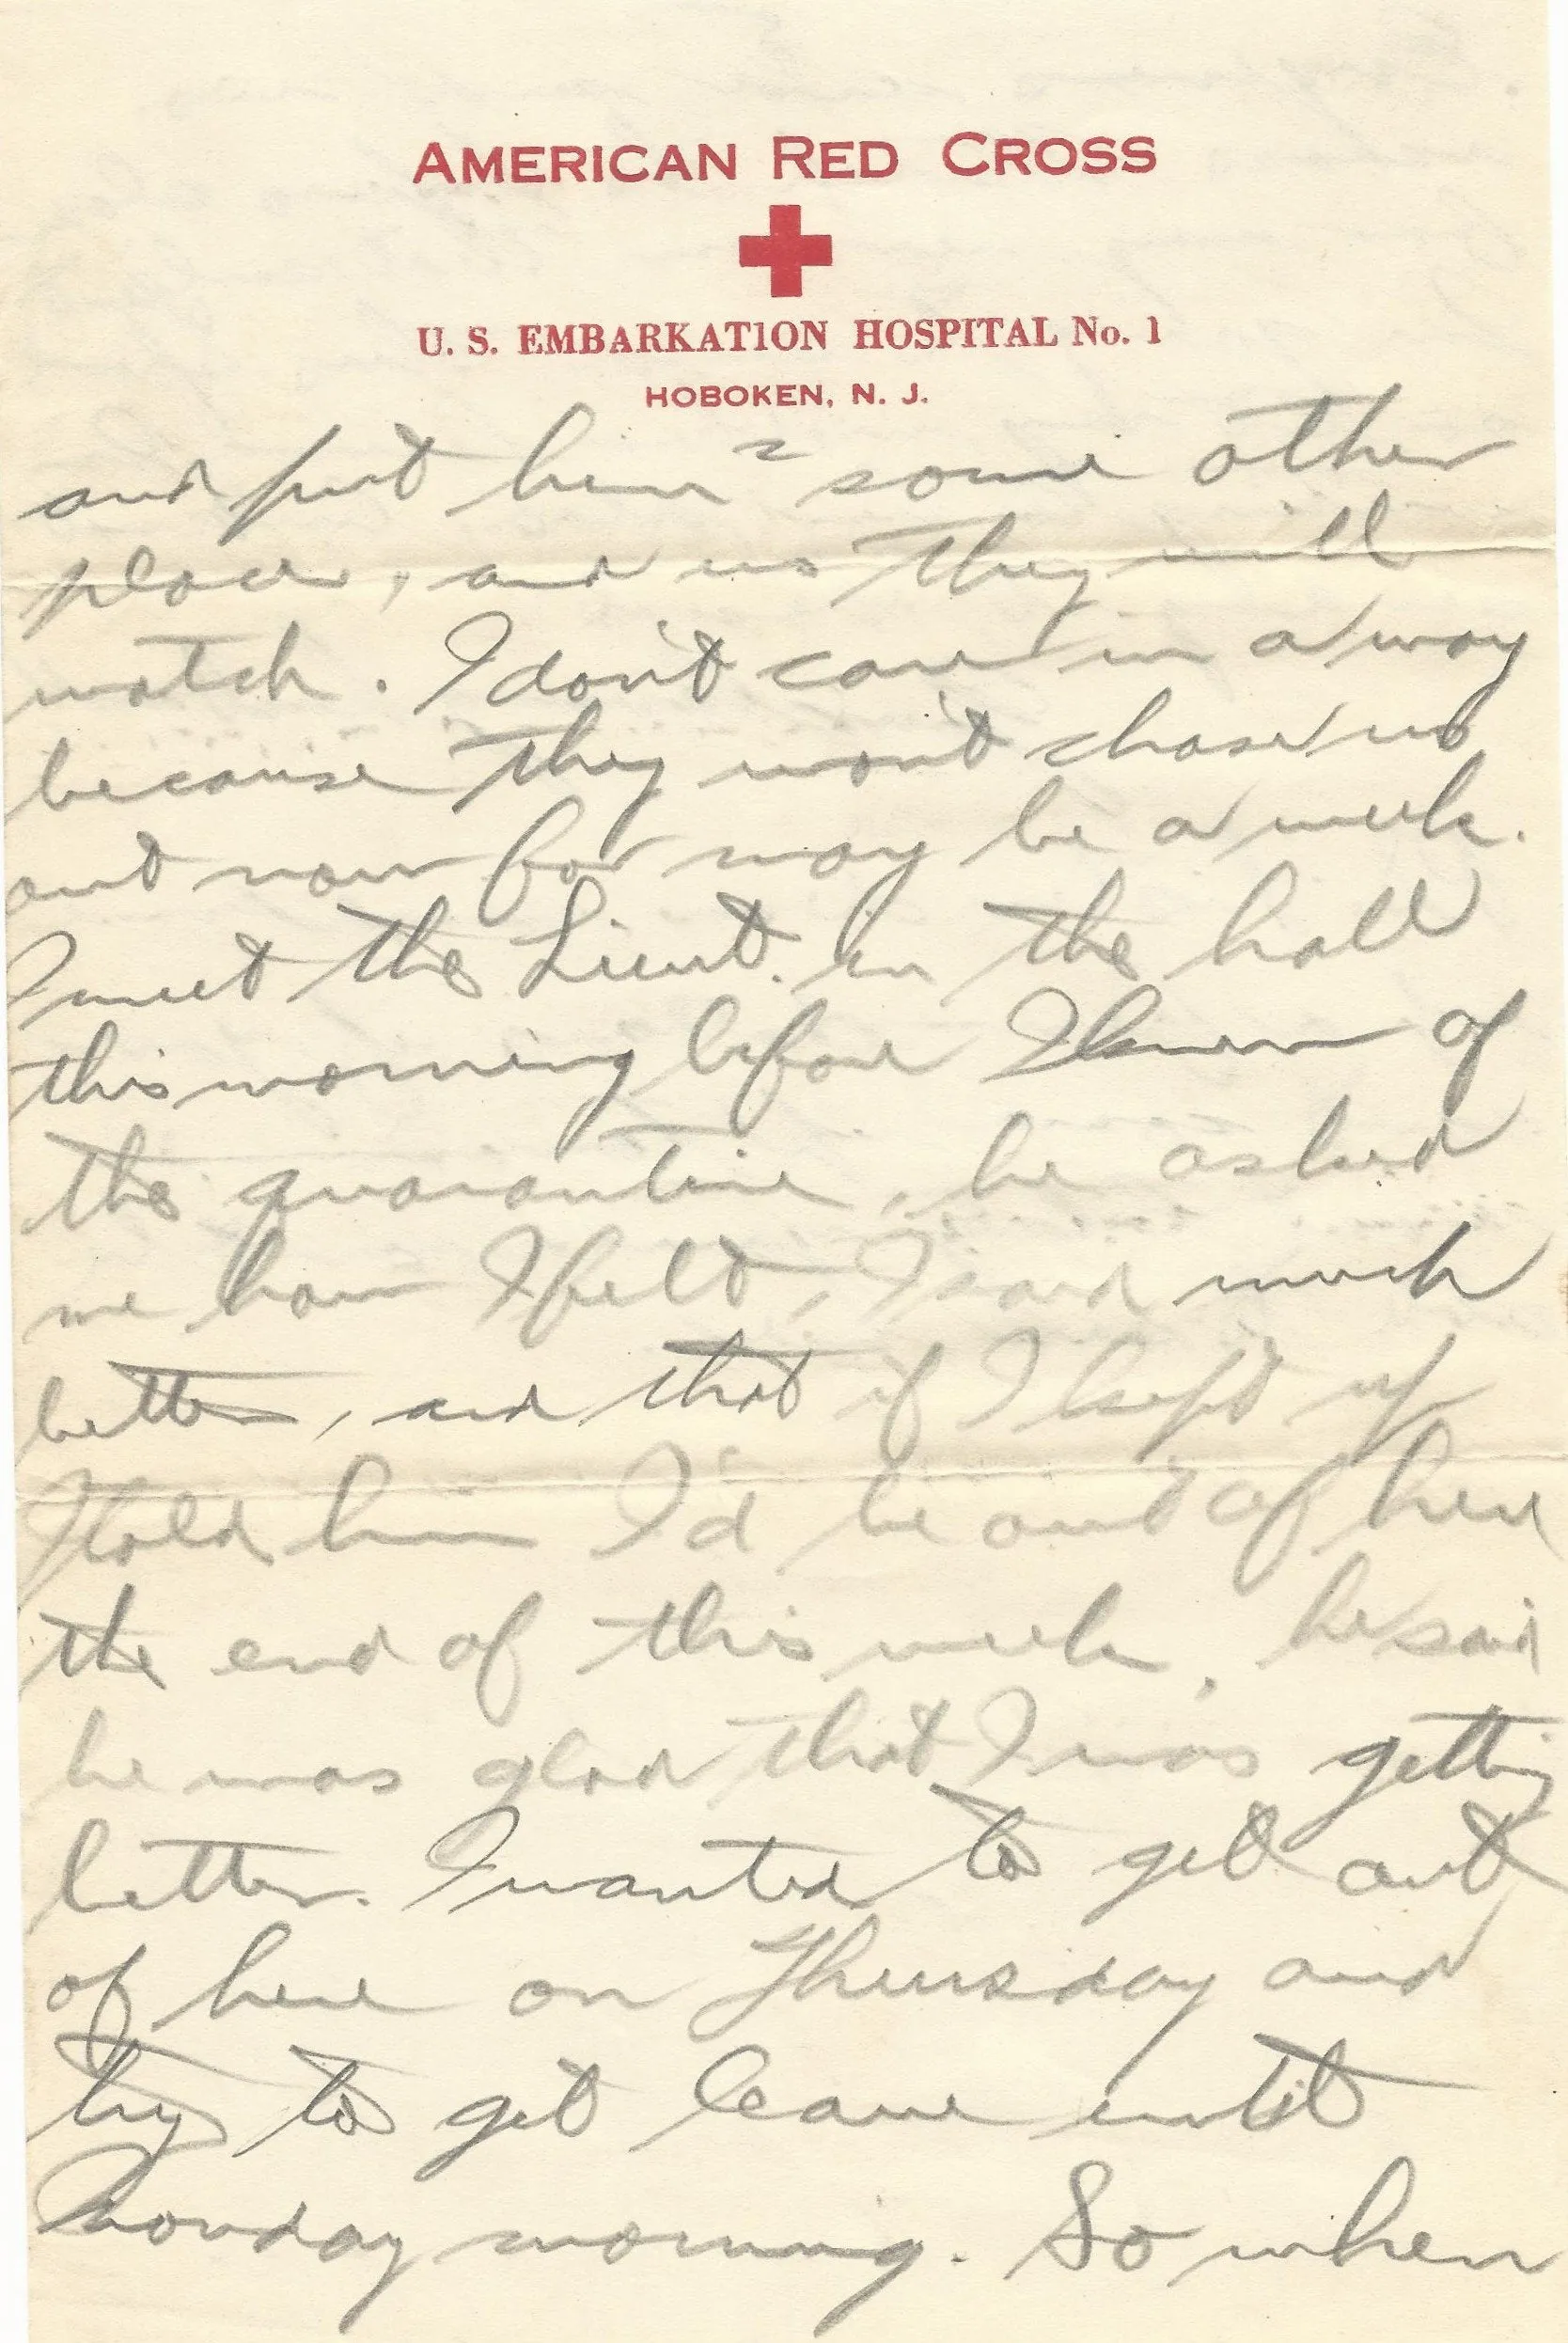 AMERICAN RED CROSS
U. S. EMBARKATION HOSPITAL No. 1
HOBOKEN, N. J.
2
and put him some other
place, and us they will
watch. I don't care in a way
because they won't chase us
out now for may be a week.
I meet the Lieut. in the hall
this morning before I knew of
the quarantine, he asked
me how I felt, I said much
better, and that if I kept up
I told him I'd be out of here
the end of this week, he said
he was glad that I was getting
better. I wanted to get out
of here on Thursday and
try to get leave until
Monday morning. So when